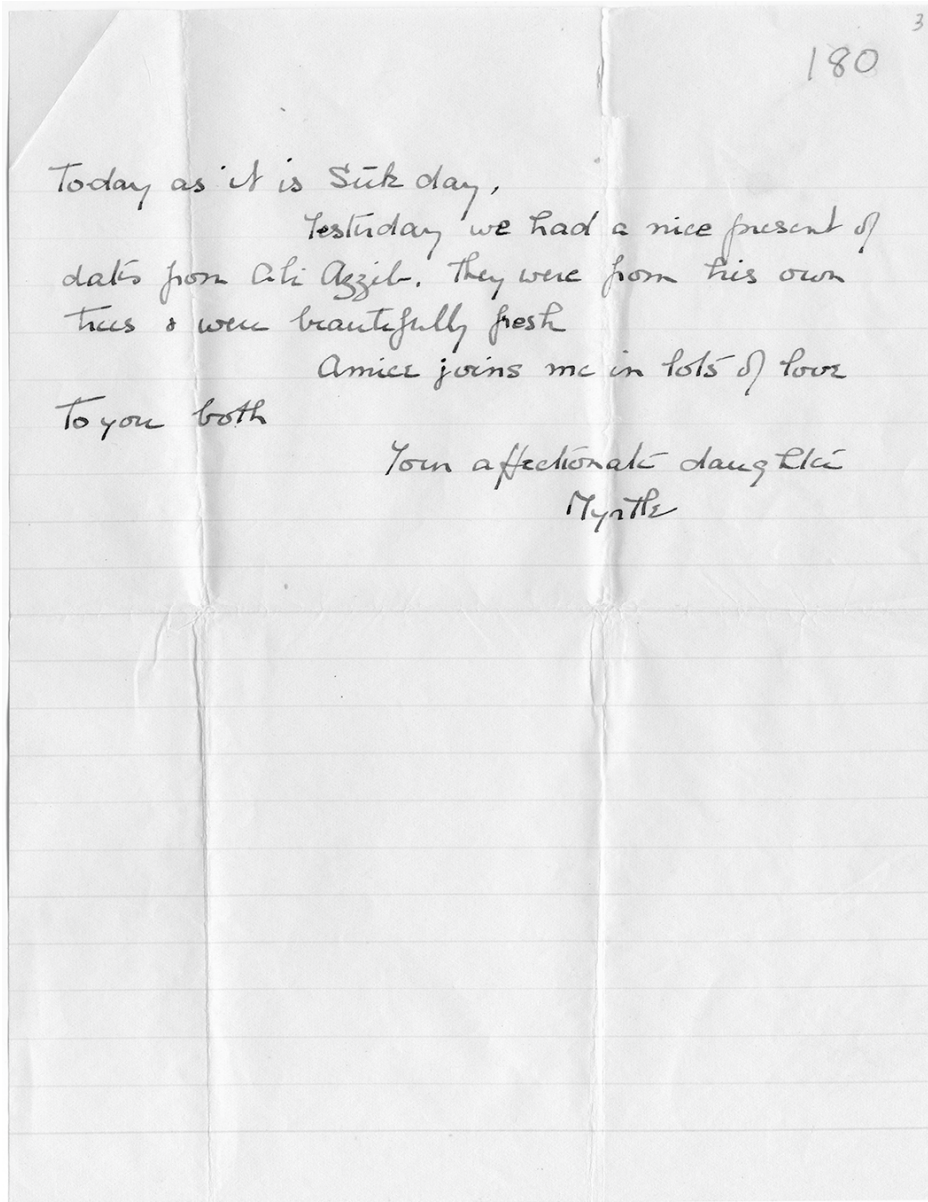 3
180
Today as it is Sūk day.
Yesterday we had a nice present of
dates from Ali Azzib. They were from his own
trees & were beautifully fresh
Amice joins me in lots of love
to you both
Your affectionate daughter
Myrtle